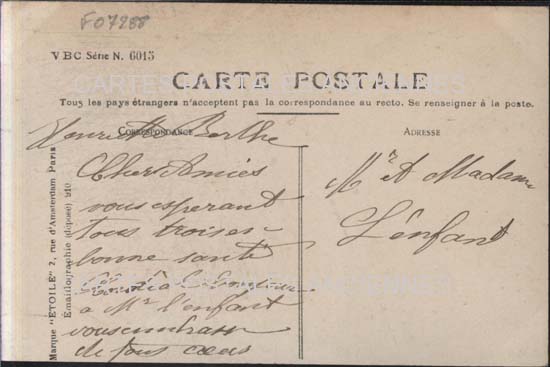 F07288
VBC Série N. 6015
CARTES POSTALES ET ANCIENNES
CARTE POSTALE
Tous les pays étrangers n'acceptent pas la correspondance au recto. Se renseigner à la poste.
CORRESPONDANCE
ADRESSE
Henriette Berthe
Cher Amies
vous esperant
tous troises
bonne santé
a Mr l'enfant
vous embrasse
de tous coeurs
Mr et Madame
Lenfant
Marque "ETOILE" 2, rue d'Amsterdam Paris
Emaillographie (déposé) 910